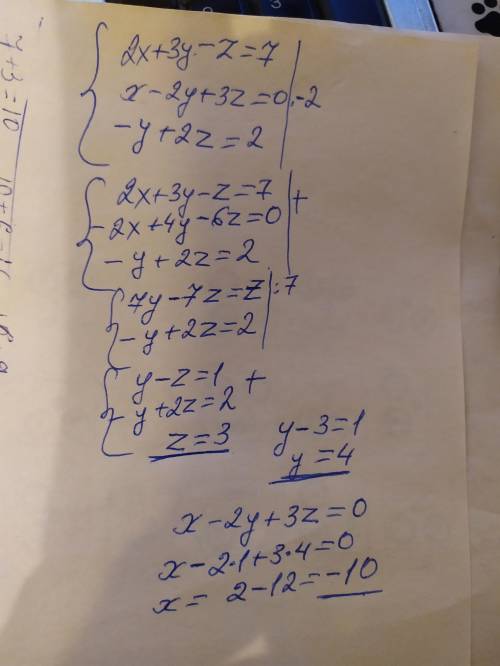 2x+3y-z=7
x-2y+3z=0 |·-2
-y+2z=2
2x+3y-z=7 | +
-2x+4y-6z=0
-y+2z=2
7y-7z=7 |:7
-y+2z=2
y-z=1 +
-y+2z=2
z=3
y-3=1
y=4
x-2y+3z=0
x-2·1+3·4=0
x= 2-12=-10
y+3=10